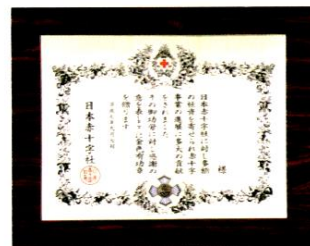 様
日本赤十字社に対し多額
の社費を寄せられ赤十字
事業の進展に多大の貢献
をされました
その御功労に対し感謝の
意を表し ここに金色有功章
を贈ります
日本赤十字社